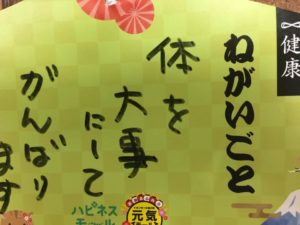 健康
ねがいごと
体を
大事
にーて
がんばり
ます
ハピネス
モール
元気